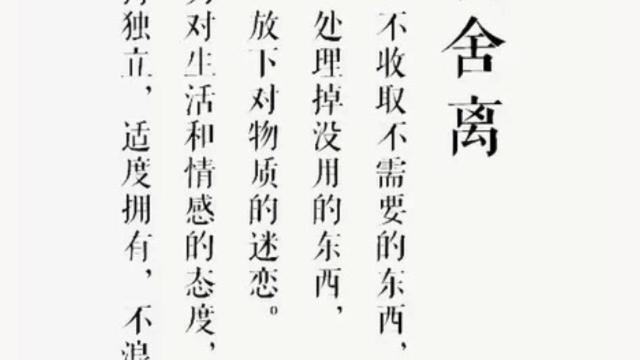 舍离
不收取不需要的东西，
处理掉没用的东西，
放下对物质的迷恋。
对生活和情感的态度，
独立，适度拥有，不浪